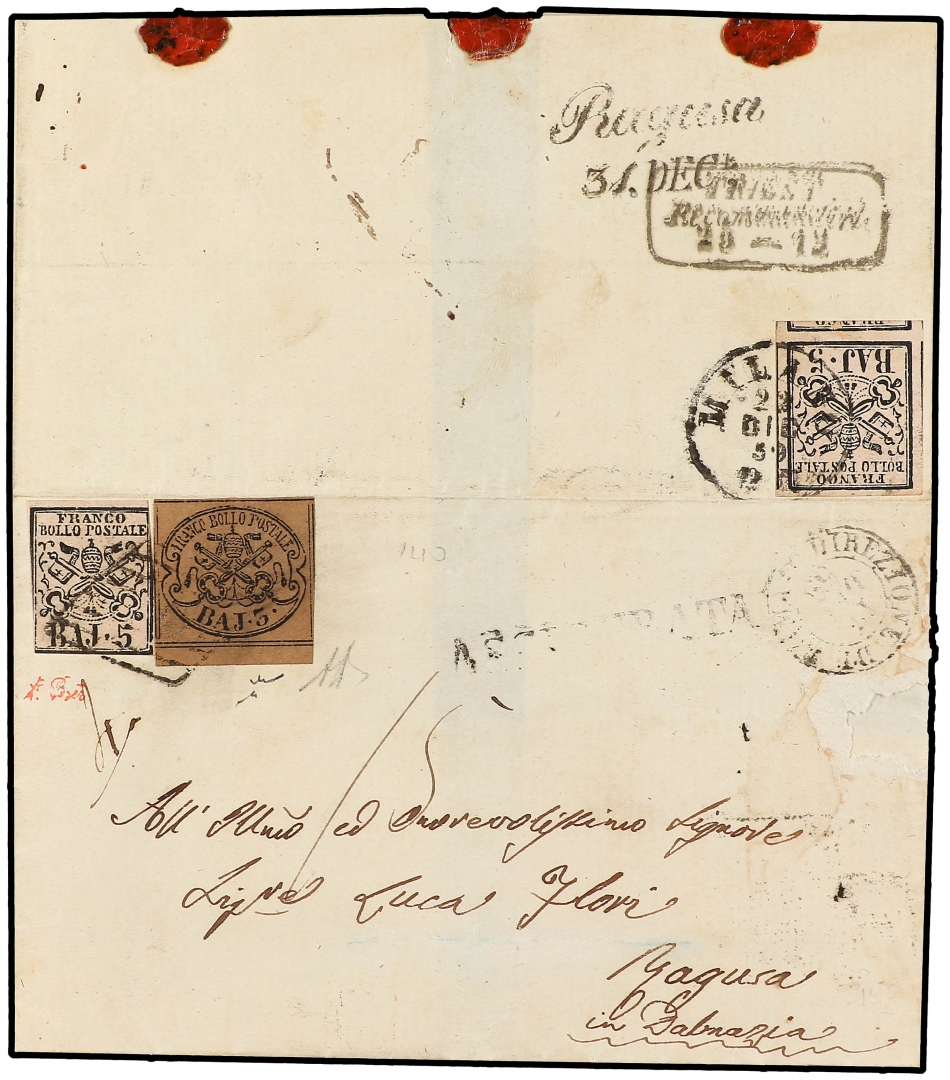 Ragusa
31. DEC
TRIEST
Recommandirt.
29 — 12
FRANCO
BAJ·5
FRANCO
BOLLO POSTALE
MILA
DIC
59
FRANCO
BOLLO POSTALE
BAJ·5
FRANCO BOLLO POSTALE
BAJ·3·
ASSICURATA
DIREZIONE DI
All' Illmo ed Onorevolissimo Signore
Luca
Ragusa
in Dalmazia